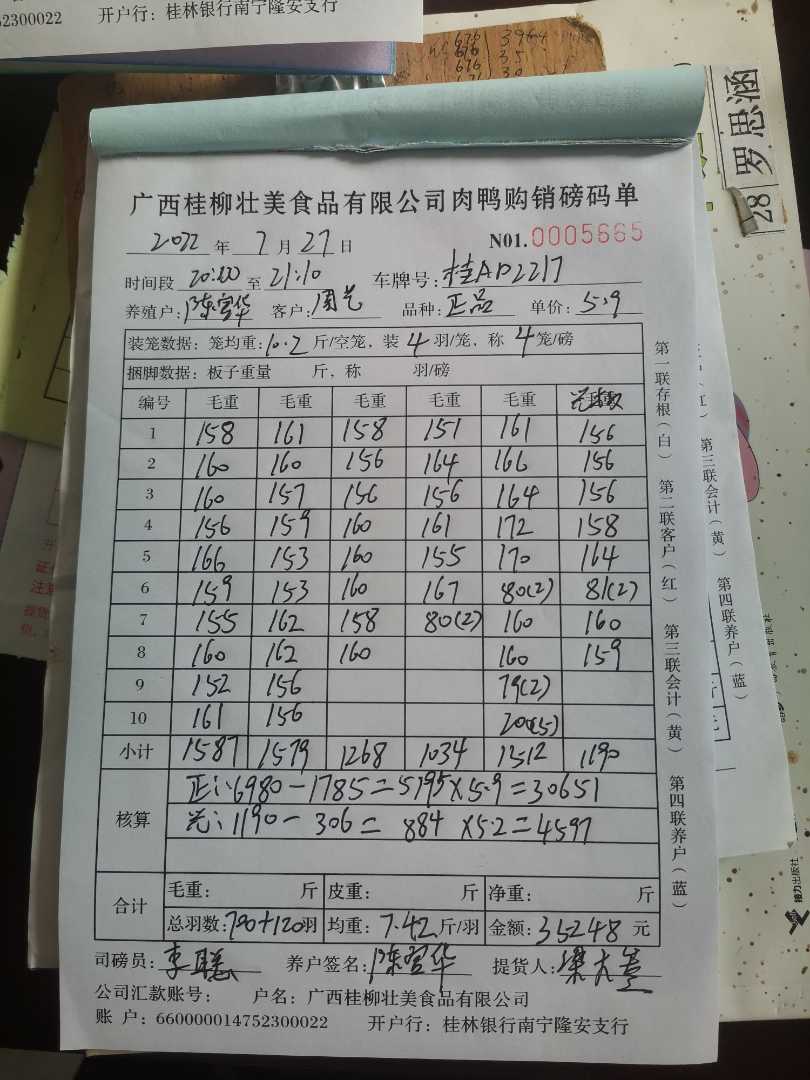 52300022 开户行：桂林银行南宁隆安支行
罗思涵
28
广西桂柳壮美食品有限公司肉鸭购销磅码单
2022 年 7 月 27 日 N01.0005665
时间段 20:00 至 21:10 车牌号：桂AP2217
养殖户：陈宝华 客户：周艺 品种：正品 单价：5.9
装笼数据：笼均重：10.2 斤/空笼，装 4 羽/笼，称 4 笼/磅
捆脚数据：板子重量 斤，称 羽/磅
编号 毛重 毛重 毛重 毛重 毛重
1 158 161 158 151 161 156
2 160 160 156 164 166 156
3 160 157 156 156 164 156
4 156 159 160 161 172 158
5 166 153 160 155 170 164
6 159 153 160 167 80(2) 81(2)
7 155 162 158 80(2) 160 160
8 160 162 160 160 159
9 152 156 79(2)
10 161 156 200(5)
小计 1587 1579 1268 1034 1512 1190
核算 正：6980-1785=5195×5.9=30651
光：1190-306=884×5.2=4597
合计 毛重： 斤 皮重： 斤 净重： 斤
总羽数：700+120羽 均重：7.42斤/羽 金额：35248 元
司磅员：李聪 养户签名：陈宝华 提货人：
公司汇款账号： 户名：广西桂柳壮美食品有限公司
账 户：660000014752300022 开户行：桂林银行南宁隆安支行
第一联存根（白） 第二联客户（红） 第三联会计（黄） 第四联养户（蓝）
第三联会计（黄） 第四联养户（蓝）